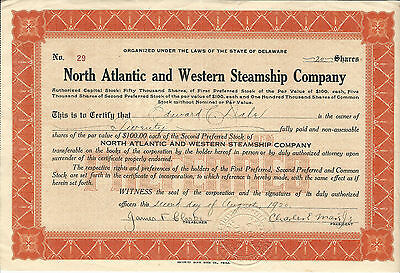 ORGANIZED UNDER THE LAWS OF THE STATE OF DELAWARE
No. 29 20 Shares
North Atlantic and Western Steamship Company
Authorized Capital Stock: Fifty Thousand Shares, of First Preferred Stock of the Par Value of $100. each, Five
Thousand Shares of Second Preferred Stock of the par value of $100. each and One Hundred Thousand Shares of Common
Stock without Nominal or Par Value.
This is to Certify that Edward C. is the owner of
Twenty fully paid and non-assessable
shares of the par value of $100.00 each of the Second Preferred Stock of
NORTH ATLANTIC AND WESTERN STEAMSHIP COMPANY
transferable on the books of the corporation by the holder hereof in person or by duly authorized attorney upon
surrender of this certificate properly endorsed.
The preferences and rights of the holders of the First Preferred, Second Preferred and Common
Stock are set forth in the certificate of incorporation, to which reference is hereby made, with the same effect as
though herein fully set forth.
WITNESS the seal of the corporation and the signatures of its duly authorized
officers this second day of August 1920.
James F. TREASURER Charles PRESIDENT